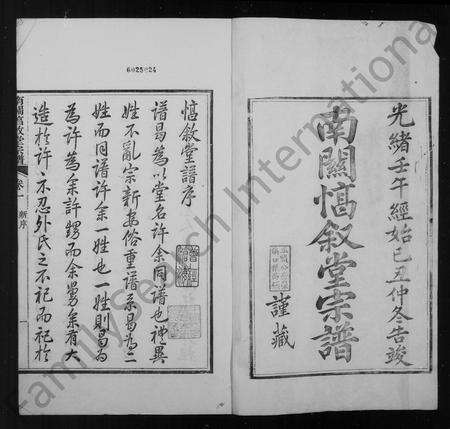 6025824
光緒壬午經始己丑仲冬告竣
南關惇敘堂宗譜
謹藏
惇敘堂譜序
譜曷為以堂名許余同譜也禮異
姓不亂宗新安俗重譜系曷為二
姓而同譜許余一姓也一姓則曷為
為許為余許甥而余舅余有大
造於許許不忍外氏之不祀而祀於
南關惇敘堂宗譜 卷一 新序
FamilySearch International